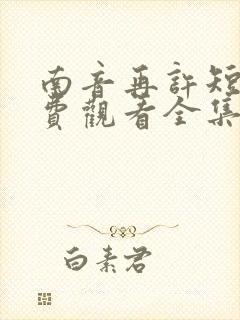 南音再許短
費觀看全集
白素君